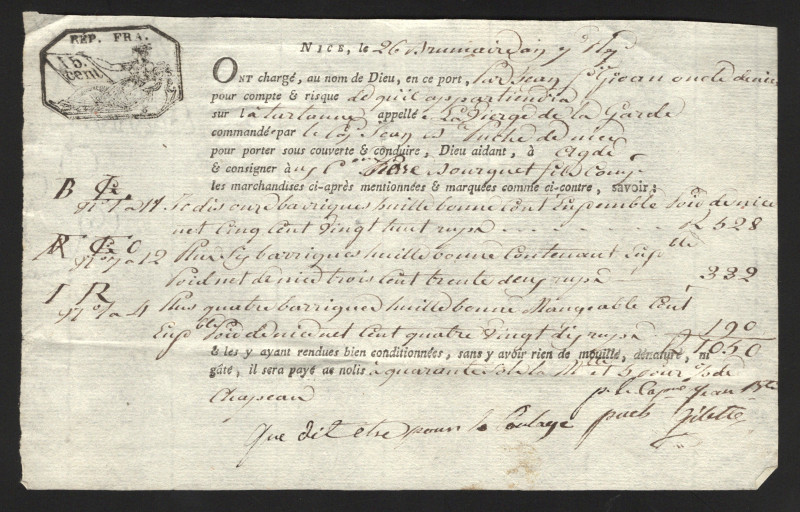 RÉP. FRA.
15 cent.
NICE, le 26 Brumaire an 9
ONT chargé, au nom de Dieu, en ce port, Jean
pour compte & risque de qu'il appartiendra
sur la tartanne appellé La Vierge de la Garde
commandé par le Cap Jean de nice
pour porter sous couverte & conduire, Dieu aidant, à Agde
& consigner à fils Comp
les marchandises ci-après mentionnées & marquées comme ci-contre, savoir :
B
N° 1 a 11 Je dis onze barriques huille bonne Cont Ensemble Poid de nice
net Cinq Cent vingt huit rups 528
N° 7 a 12 Plus Six barriques huille bonne Contenant Ens ble
Poid net de nice trois Cent trente deux rups 332
I R
N° 1 a 4 Plus quatre barriques huille bonne Mangeable Cont
Ens ble Poid de nice net Cent quatre vingt dix rups 190
1050
& les y ayant rendues bien conditionnées, sans y avoir rien de mouillé, dénaturé, ni
gâté, il sera payé de nolis à quarante de la et 5 pour % de
Chapeau
p. le Cap ne Jean Bte
Que dit etre pour le